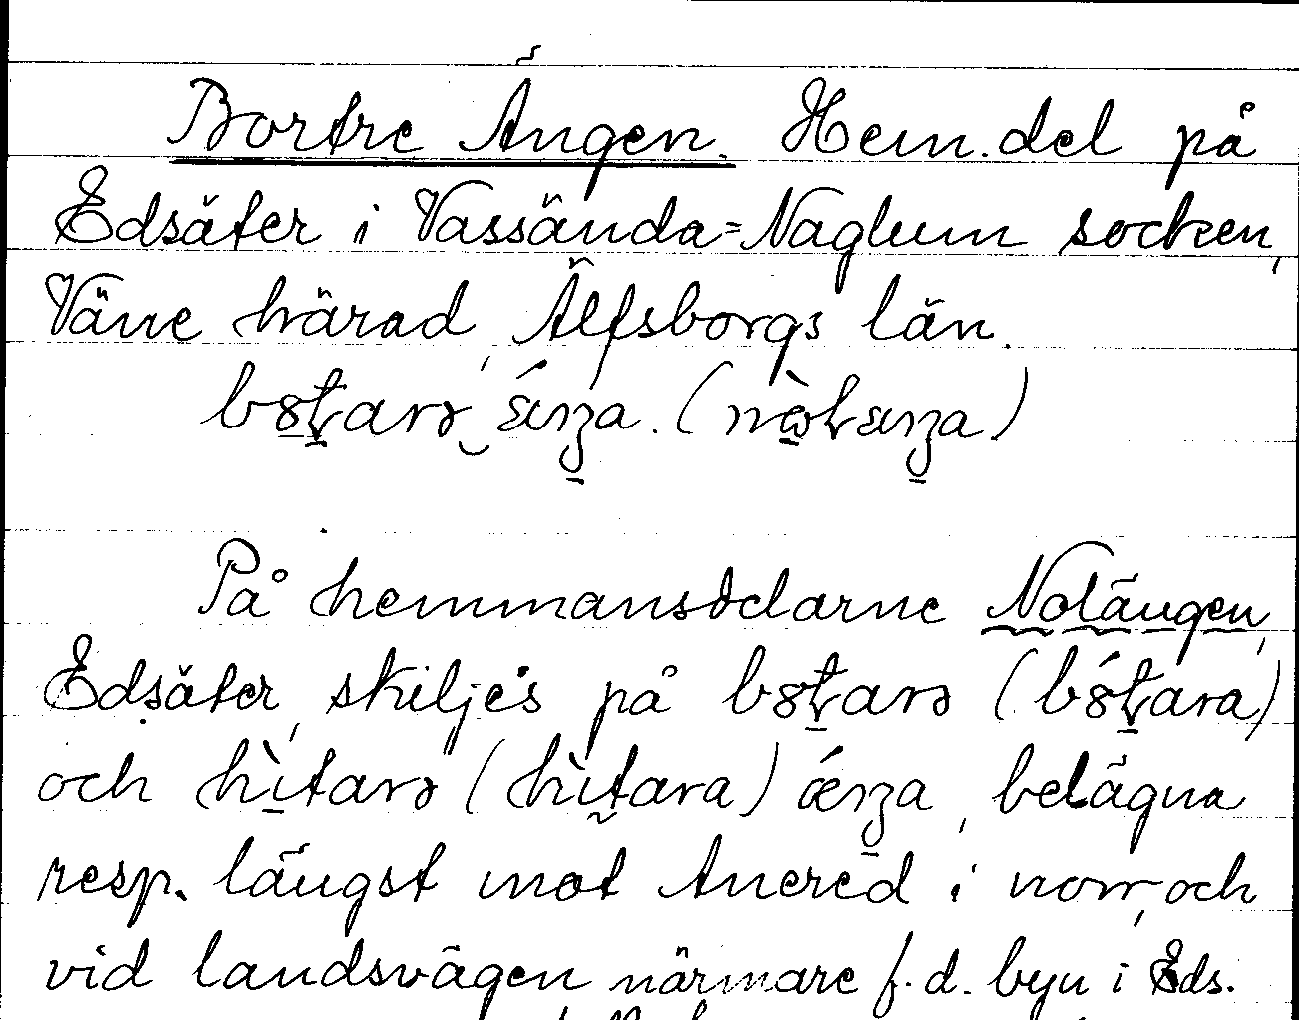 Bortre Ängen. Hem.del på
Edsäter i Vassända=Naglum socken,
Väne härad, Älfsborgs län.
På hemmansdelarne Notängen,
Edsäter, skiljes på
och belägna
resp. längst mot Anered i norr, och
vid landsvägen närmare f.d. byn i Eds.